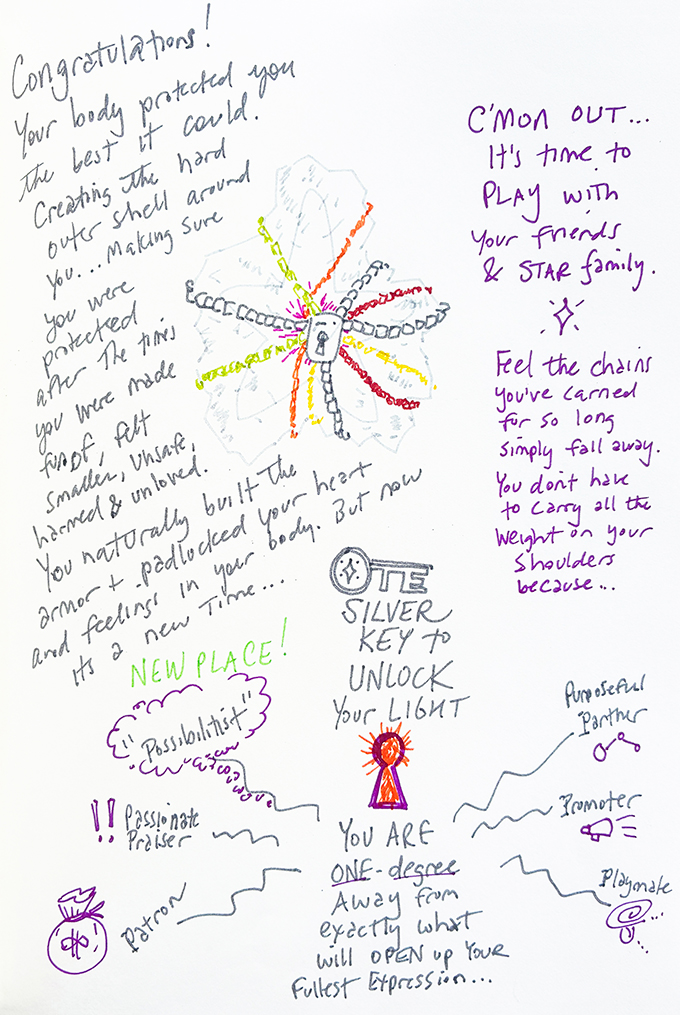 Congratulations!
Your body protected you
the best it could.
Creating the hard
outer shell around
you... Making sure
you were
protected
after the times
you were made
fun of, felt
smaller, unsafe,
harmed & unloved.
You naturally built the
armor + padlocked your heart
and feelings in your body. But now
its a new time...
NEW PLACE!
C'MON OUT...
It's time to
PLAY with
Your friends
& STAR family.
Feel the chains
you've carried
for so long
simply fall away.
You don't have
to carry all the
weight on your
shoulders
because...
THE
SILVER
KEY to
UNLOCK
Your LIGHT
"Possibilitist"
!! Passionate
Praiser
Patron
Purposeful
Partner
Promoter
Playmate
YOU ARE
ONE-degree
Away from
exactly what
will OPEN up YOUR
Fullest Expression...